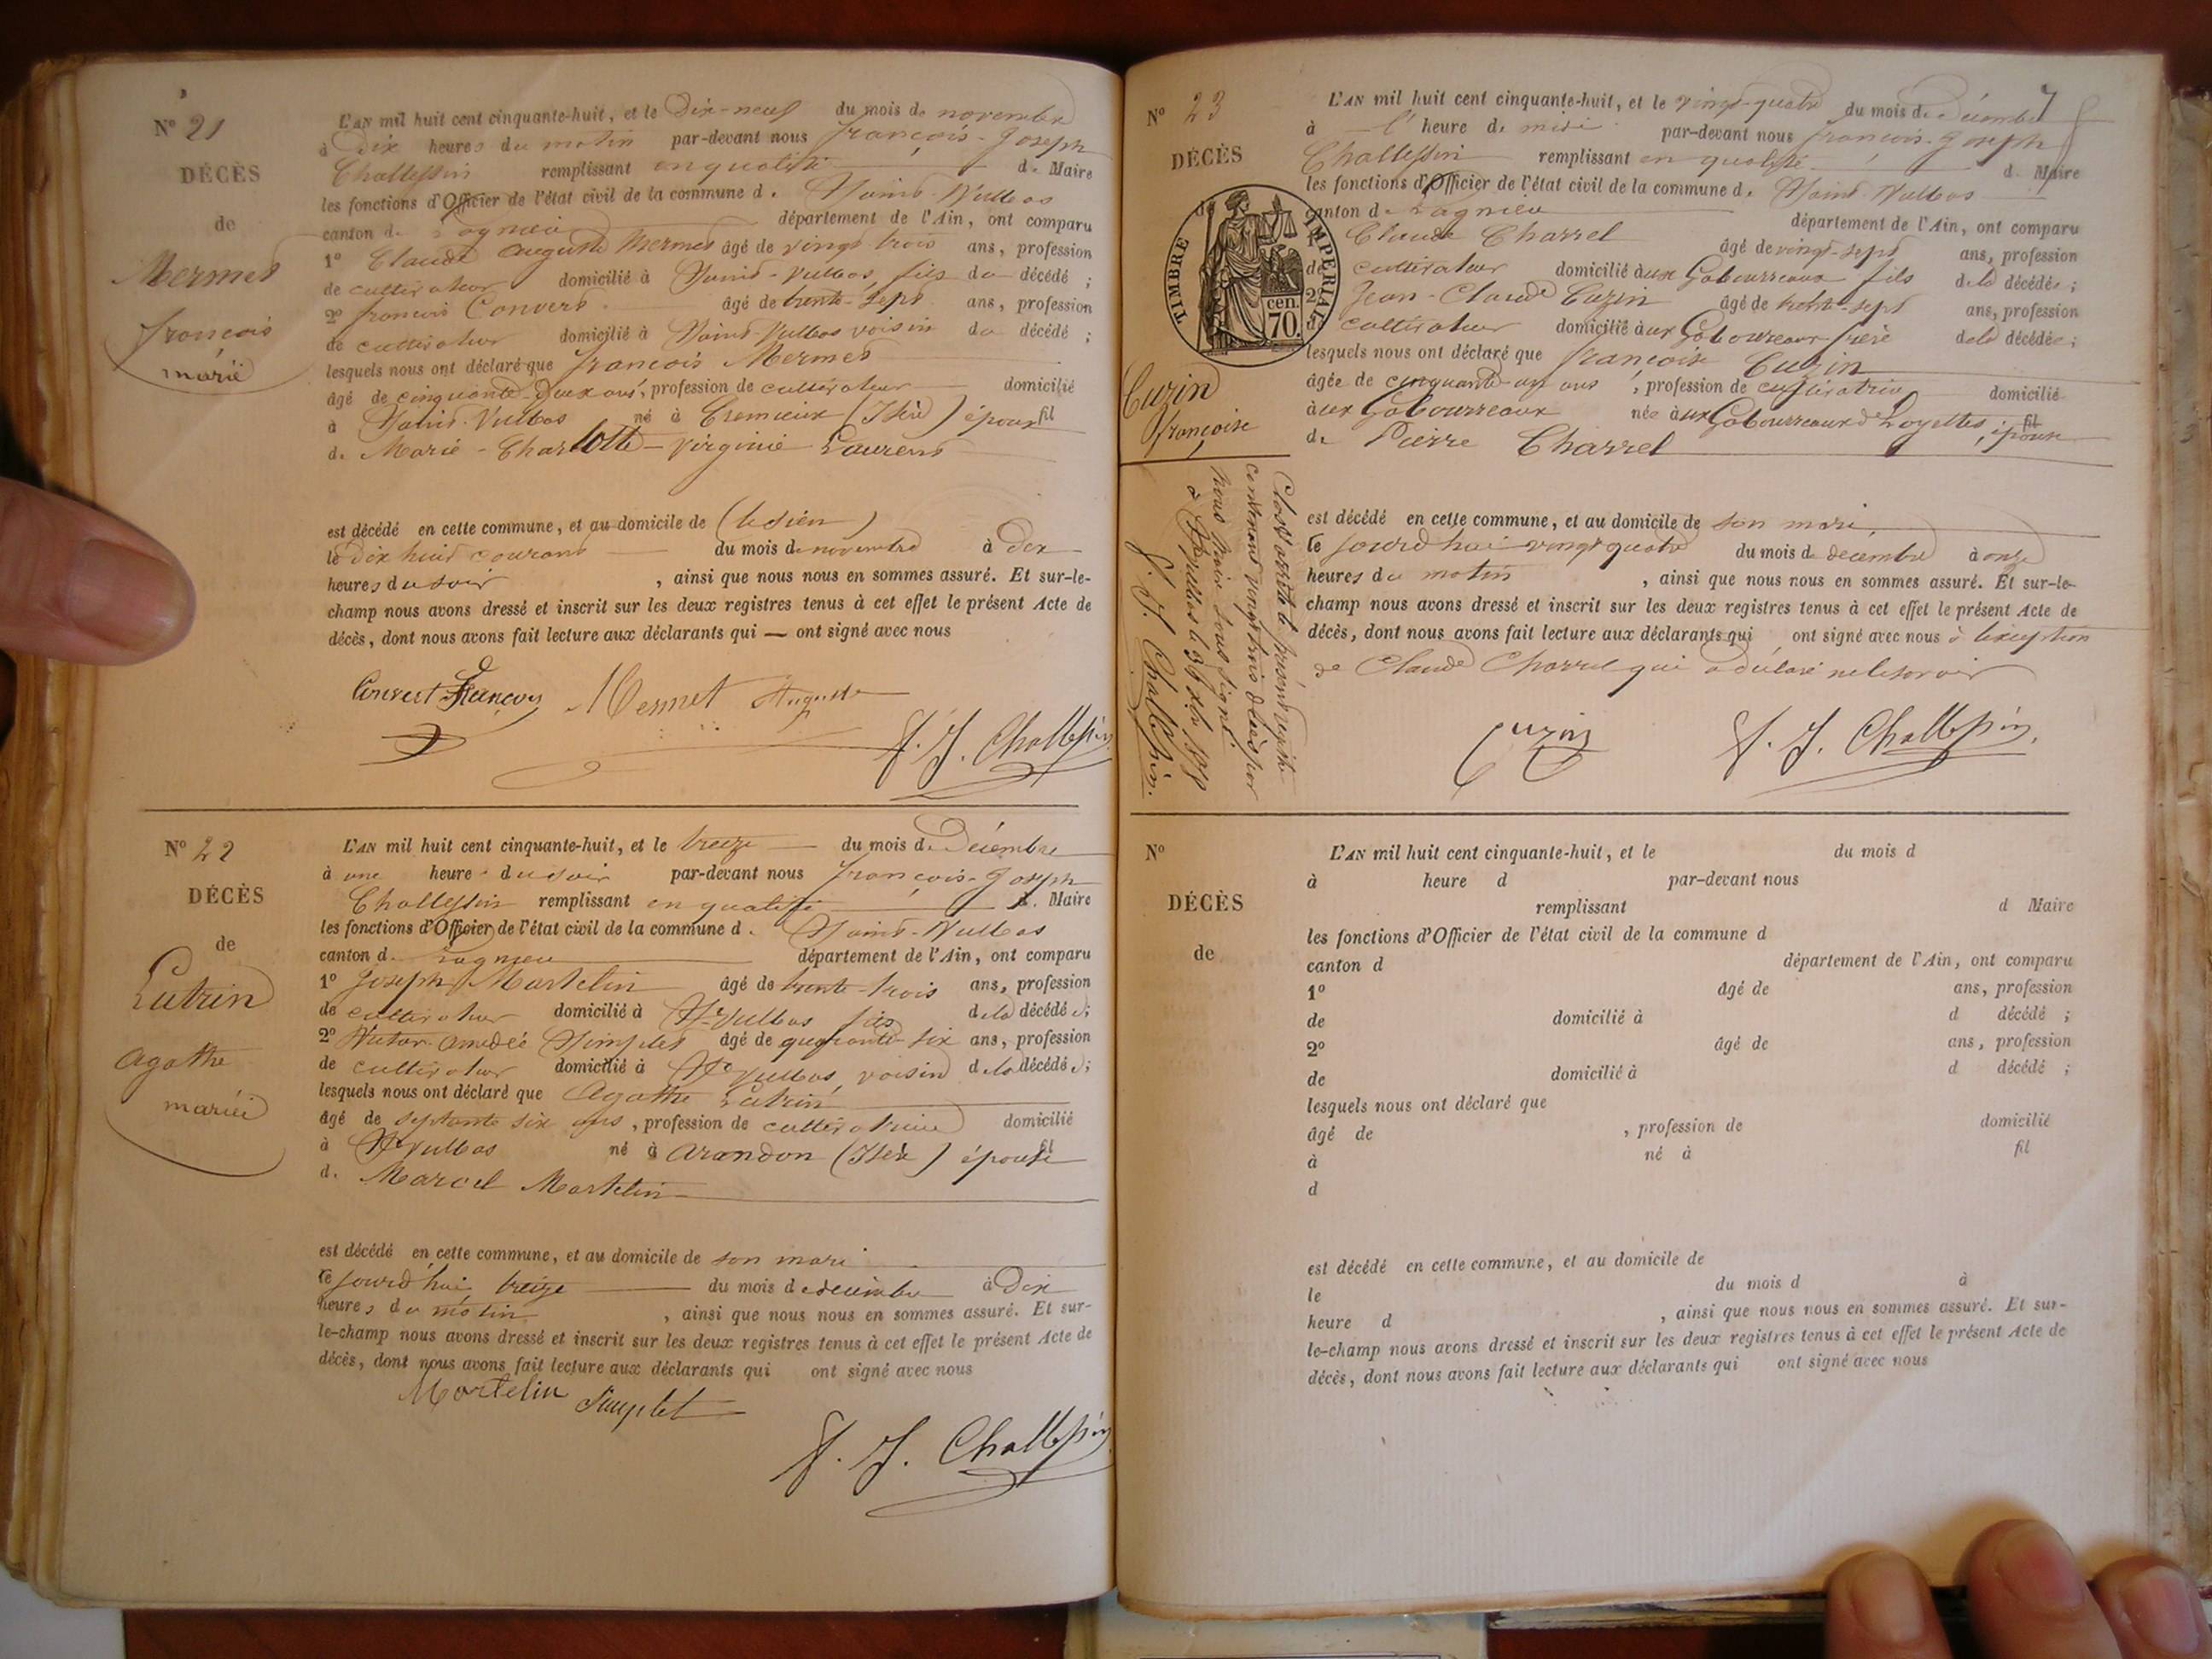 N° 21
DÉCÈS
de
Mermet
françois
marié
L'AN mil huit cent cinquante-huit, et le Dix-neuf du mois de novembre
à Dix heures du matin par-devant nous françois-Joseph
Challessin remplissant en qualité de Maire
les fonctions d'Officier de l'état civil de la commune de Saint-Vulbas
canton de Lagnieu département de l'Ain, ont comparu
1° Claude Auguste Mermet âgé de vingt trois ans, profession
de cultivateur domicilié à Saint-Vulbas, fils du décédé ;
2° françois Convers âgé de trente-sept ans, profession
de cultivateur domicilié à Saint-Vulbas voisin du décédé ;
lesquels nous ont déclaré que françois Mermet
âgé de cinquante-deux ans, profession de cultivateur domicilié
à Saint-Vulbas né à Cremieux (Isère) époux fil
de Marie-Charlotte-Virginie Laurens
est décédé en cette commune, et au domicile de (le sien)
le dix huit courant du mois de novembre à Dix
heures du soir , ainsi que nous nous en sommes assuré. Et sur-le-
champ nous avons dressé et inscrit sur les deux registres tenus à cet effet le présent Acte de
décès, dont nous avons fait lecture aux déclarants qui — ont signé avec nous
Convert François Mermet Auguste
F. J. Challessin
N° 22
DÉCÈS
de
Lutrin
agathe
mariée
L'AN mil huit cent cinquante-huit, et le treize du mois de Décembre
à une heure du soir par-devant nous françois-Joseph
Challessin remplissant en qualité de Maire
les fonctions d'Officier de l'état civil de la commune de Saint-Vulbas
canton de Lagnieu département de l'Ain, ont comparu
1° Joseph Martelin âgé de trente-trois ans, profession
de cultivateur domicilié à St Vulbas fils de la décédée ;
2° Victor amédée Simplet âgé de quarante-six ans, profession
de cultivateur domicilié à St Vulbas, voisin de la décédée ;
lesquels nous ont déclaré que Agathe Lutrin
âgé de septante six ans, profession de cultivatrice domicilié
à St Vulbas né à arandon (Isère) épouse fil
de Marcel Martelin
est décédé en cette commune, et au domicile de son mari
le jourd'hui treize du mois de décembre à Dix
heures du matin , ainsi que nous nous en sommes assuré. Et sur-
le-champ nous avons dressé et inscrit sur les deux registres tenus à cet effet le présent Acte de
décès, dont nous avons fait lecture aux déclarants qui ont signé avec nous
Martelin Simplet
F. J. Challessin
7
N° 23
DÉCÈS
de
TIMBRE IMPÉRIAL
70 cen.
Cuzin
françoise
L'AN mil huit cent cinquante-huit, et le vingt-quatre du mois de décembre
à l' heure de midi par-devant nous françois-Joseph
Challessin remplissant en qualité de Maire
les fonctions d'Officier de l'état civil de la commune de Saint-Vulbas
canton de Lagnieu département de l'Ain, ont comparu
1° Claude Charrel âgé de vingt-sept ans, profession
de cultivateur domicilié aux Gabourreaux fils de la décédée ;
2° Jean-Claude Cuzin âgé de trente-sept ans, profession
de cultivateur domicilié aux Gabourreaux frère de la décédée ;
lesquels nous ont déclaré que françoise Cuzin
âgée de cinquante-un ans , profession de cultivatrice domicilié
aux Gabourreaux née aux Gabourreaux de Loyettes, fil épouse
de Pierre Charrel
est décédé en cette commune, et au domicile de son mari
le jourd'hui vingt quatre du mois de décembre à onze
heures du matin , ainsi que nous nous en sommes assuré. Et sur-le-
champ nous avons dressé et inscrit sur les deux registres tenus à cet effet le présent Acte de
décès, dont nous avons fait lecture aux déclarants qui ont signé avec nous à l'exception
de Claude Charrel qui a déclaré ne le savoir
Cuzin F. J. Challessin
Clos & arrêté le présent registre
contenant vingt trois décès par
nous Maire sous signé.
à St Vulbas le 31 Xbre 1858
F. J. Challessin.
N°
DÉCÈS
de
L'AN mil huit cent cinquante-huit, et le du mois d
à heure d par-devant nous
remplissant d Maire
les fonctions d'Officier de l'état civil de la commune d
canton d département de l'Ain, ont comparu
1° âgé de ans, profession
de domicilié à d décédé ;
2° âgé de ans, profession
de domicilié à d décédé ;
lesquels nous ont déclaré que
âgé de , profession de domicilié
à né à fil
d
est décédé en cette commune, et au domicile de
le du mois d à
heure d , ainsi que nous nous en sommes assuré. Et sur-
le-champ nous avons dressé et inscrit sur les deux registres tenus à cet effet le présent Acte de
décès, dont nous avons fait lecture aux déclarants qui ont signé avec nous